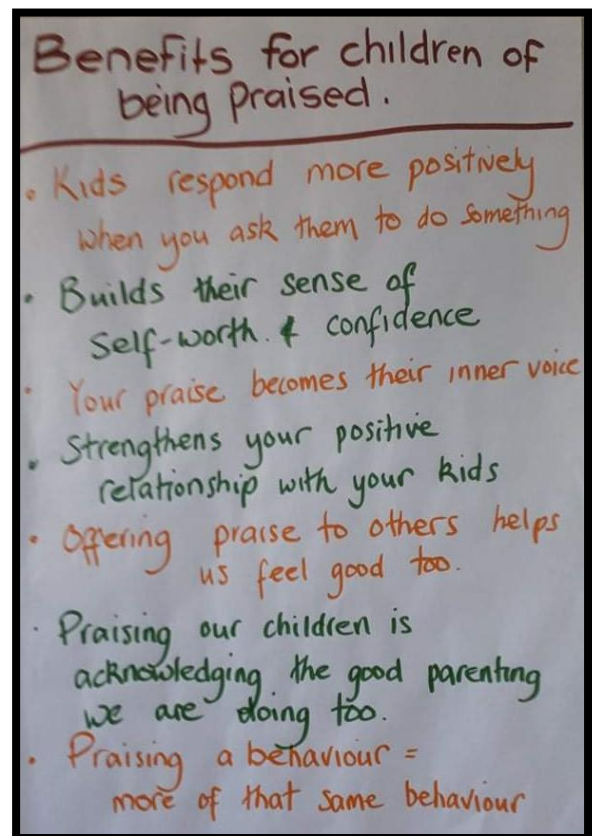 Benefits for children of
being praised.
• Kids respond more positively
when you ask them to do something
• Builds their sense of
self-worth. & confidence
• Your praise becomes their inner voice
• Strengthens your positive
relationship with your kids
• Offering praise to others helps
us feel good too.
• Praising our children is
acknowledging the good parenting
we are doing too.
• Praising a behaviour =
more of that same behaviour